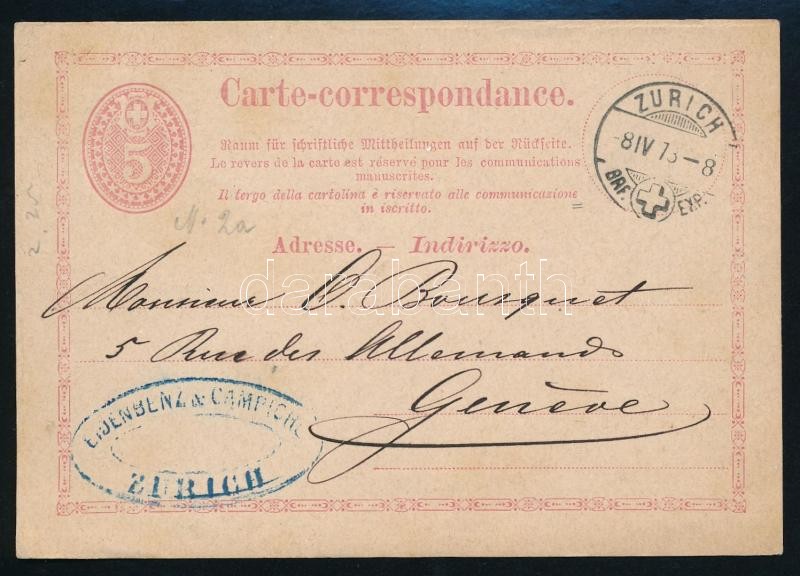 Carte-correspondance.
5
Raum für schriftliche Mittheilungen auf der Rückseite.
Le revers de la carte est réservé pour les communications
manuscrites.
Il tergo della cartolina è riservato alle communicazione
in iscritto.
ZURICH
-8 IV 73-8
BRF. EXP.
N. 2a
2.25
Adresse. — Indirizzo.
Monsieur D. Bousquet
5 Rue des Allemands
Genève
EIDENBENZ & CAMPICHE
ZURICH
darabanth